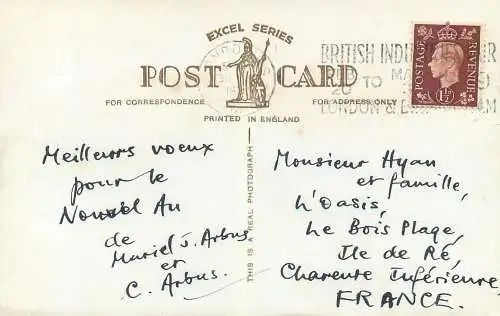 EXCEL SERIES
POST CARD
FOR CORRESPONDENCE
FOR ADDRESS ONLY
PRINTED IN ENGLAND
POSTAGE REVENUE
1½
BRITISH
20 TO
LONDON &
THIS IS A REAL PHOTOGRAPH
Meilleurs voeux
pour le
Nouvel An
de
Muriel J. Arbus
et
C. Arbus.
Monsieur Hyan
et famille,
L'Oasis,
Le Bois Plage,
Ile de Ré,
Charente Inférieure,
FRANCE.